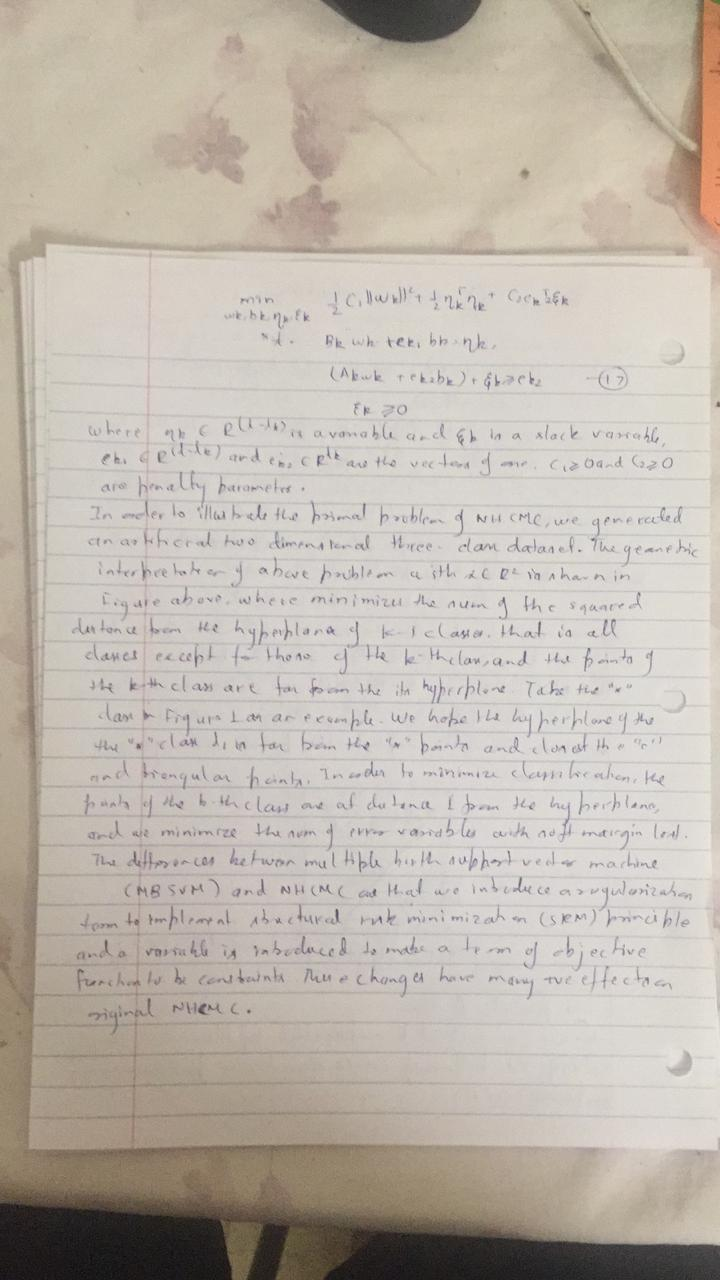 min 1/2 C₁||wk||² + 1/2 ηkᵀηk + C₂ek₂ᵀξk
wk,bk,ηk,ξk
s.t. Bk wk + ek₁ bk = ηk,
(Akwk + ek₂bk) + ξk ≥ ek₂ —(17)
ξk ≥ 0
where ηk ∈ R^(l-lk) is a variable and ξk is a slack variable,
ek₁ ∈ R^(l-lk) and ek₂ ∈ R^lk are the vectors of one. C₁≥0 and C₂≥0
are penalty parameters.
In order to illustrate the primal problem of NHCMC, we generated
an artificial two dimensional three-class dataset. The geometric
interpretation of above problem with x∈R² is shown in
Figure above, where minimizes the sum of the squared
distance from the hyperplane of k-1 classes. that is all
classes except for those of the k-th class, and the points of
the k-th class are far from the its hyperplane. Take the "*"
class in Figure 1 as an example. We hope the hyperplane of the
the "*" class is far from the "*" points and close to the "o"
and triangular points. In order to minimize classification, the
points of the k-th class are at distance 1 from the hyperplane,
and we minimize the sum of error variables with soft margin loss.
The differences between multiple birth support vector machine
(MBSVM) and NHCMC are that we introduce a regularization
term to implement structural risk minimization (SRM) principle
and a variable is introduced to make a term of objective
function to be constraints. These changes have many +ve effects on
original NHCMC.